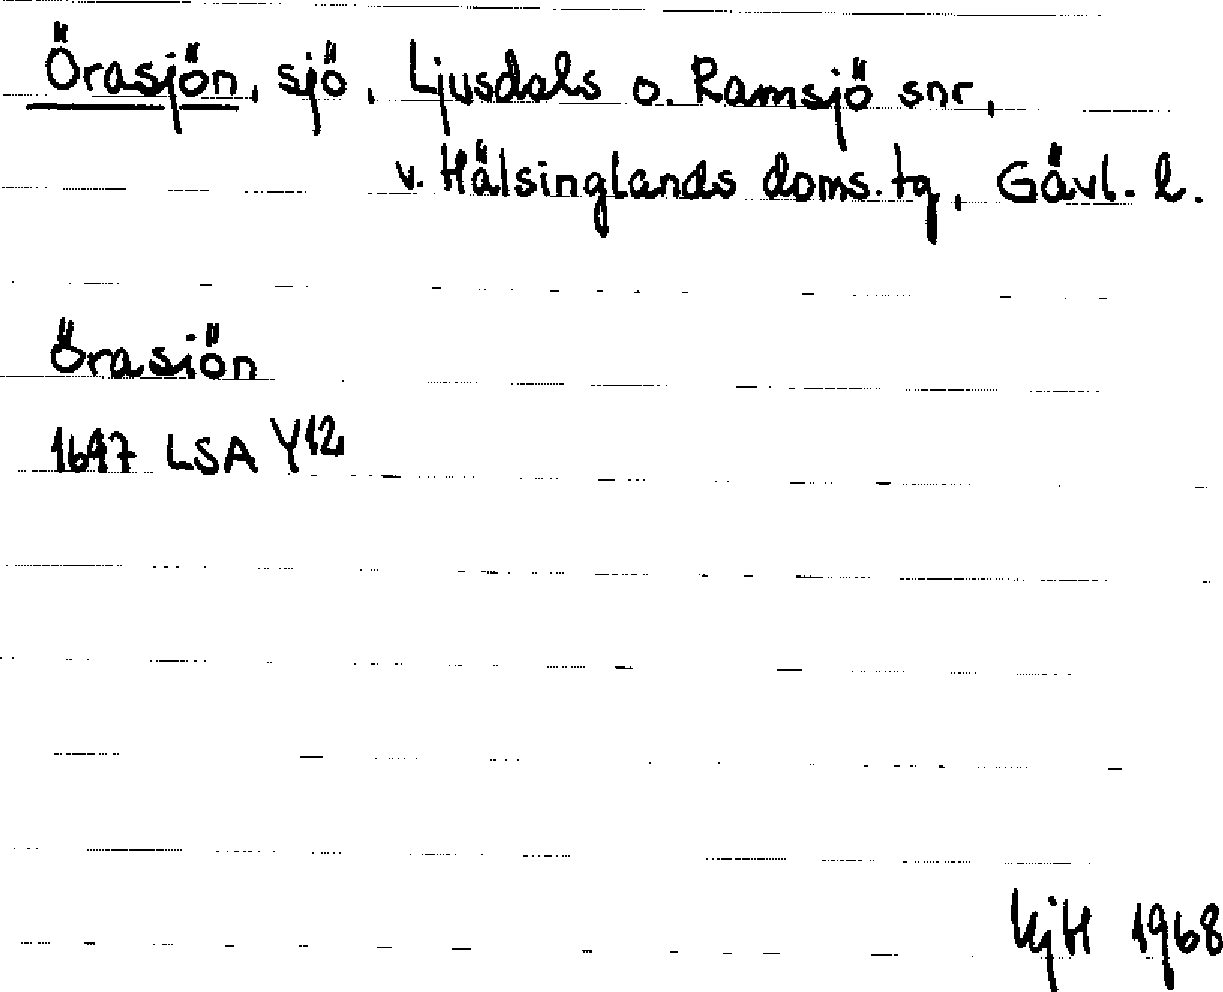 Örasjön, sjö, Ljusdals o. Ramsjö snr,
v. Hälsinglands doms.tg, Gävl. l.
Örasiön
1697 LSA Y12
KjH 1968